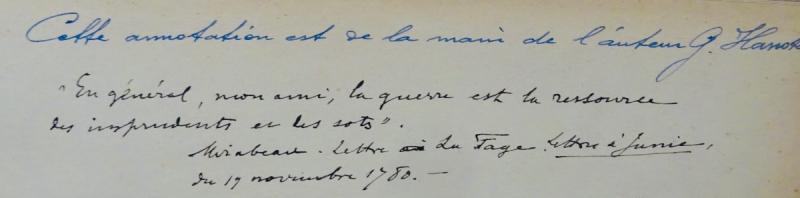 Cette annotation est de la main de l'auteur G. Hanot
"En général, mon ami, la guerre est la ressource
des imprudents et des sots".
Mirabeau. Lettre à La Fage. Lettre à Junie,
du 19 novembre 1780. —